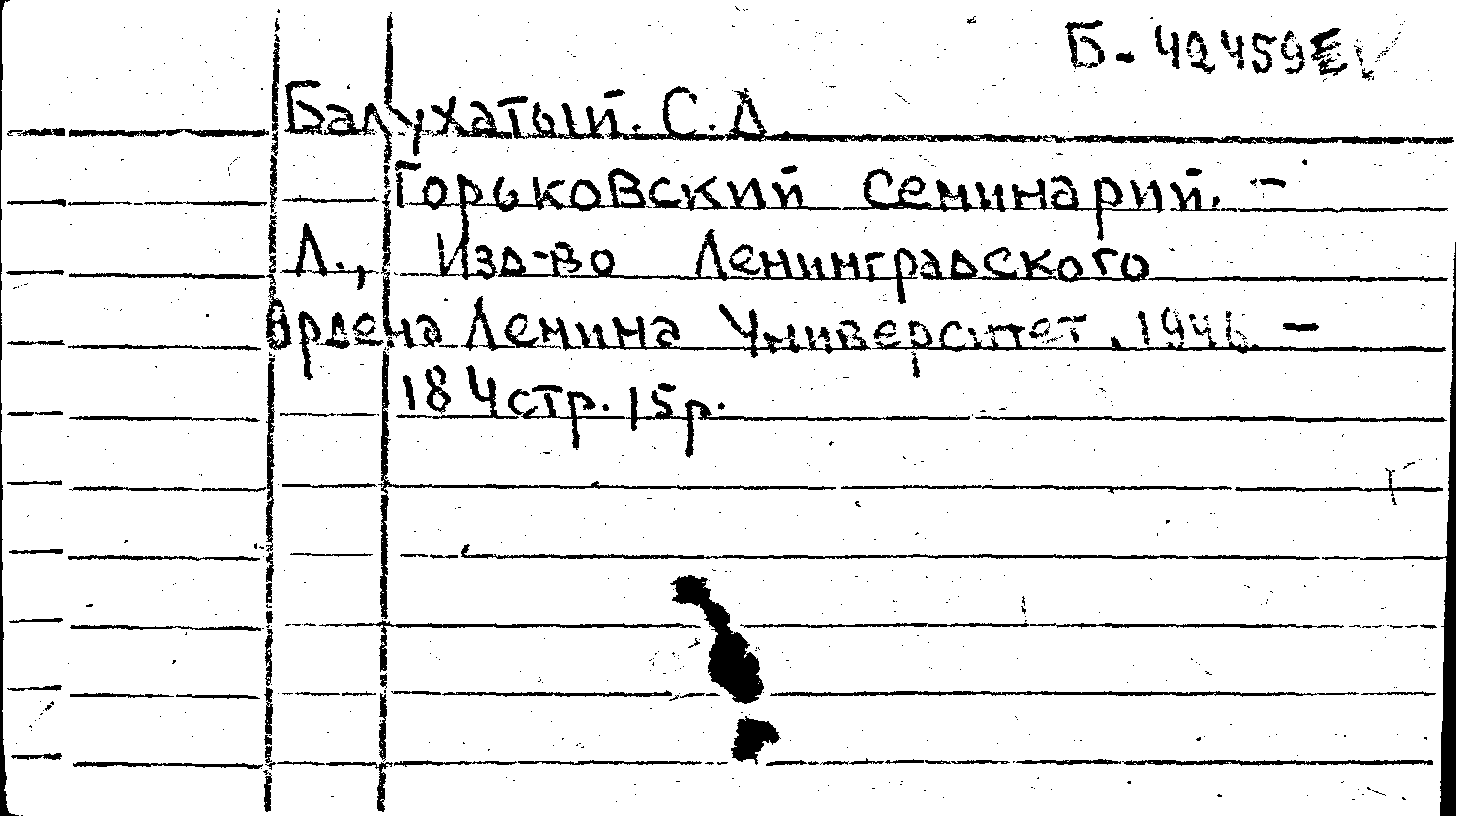 Б-42459
Балухатый. С.Д.
Горьковский семинарий. -
Л., Изд-во Ленинградского
Ордена Ленина Университет, 1946. -
184стр. 15р.